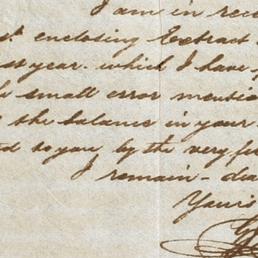 I am in rece
st enclosing Extract
st year. which I have
small error mentio
the balance in your
d to you by the very fi
I remain - dea
Yours